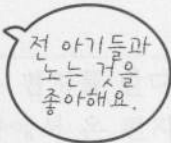 전 아기들과
노는 것을
좋아해요.